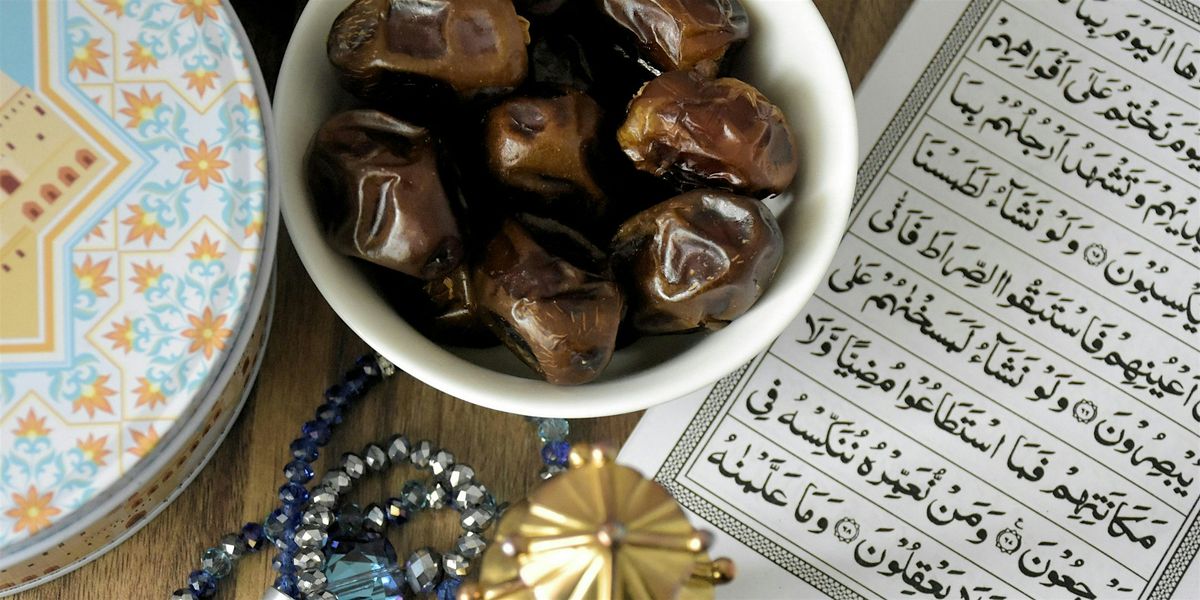 الْيَوْمَ بِمَا
نَخْتِمُ عَلٰٓى اَفْوَاهِهِمْ
وَتَشْهَدُ اَرْجُلُهُمْ بِمَا
يَكْسِبُوْنَ ۝٦٥ وَلَوْ نَشَآءُ لَطَمَسْنَا
اَعْيُنِهِمْ فَاسْتَبَقُوا الصِّرَاطَ فَاَنّٰى
يُبْصِرُوْنَ ۝٦٦ وَلَوْ نَشَآءُ لَمَسَخْنٰهُمْ عَلٰى
مَكَانَتِهِمْ فَمَا اسْتَطَاعُوْا مُضِيًّا وَّلَا
يَرْجِعُوْنَ ۝٦٧ وَمَنْ نُّعَمِّرْهُ نُنَكِّسْهُ فِى
يَعْقِلُوْنَ ۝٦٨ وَمَا عَلَّمْنٰهُ